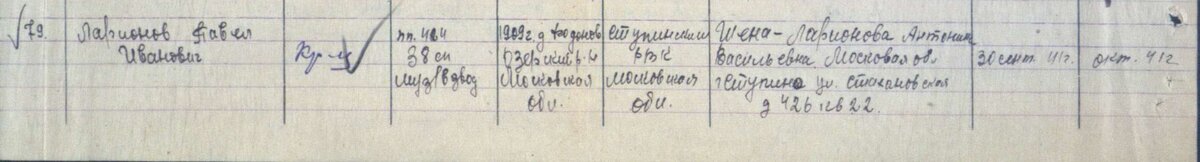 79. Ларионов Павел
Иванович
Кр-ц
пп. 484
38 сп
муз/взвод
1909г. д
Озерский р-н
Московская
обл.
Ступинским
РВК
Московская
обл.
Жена - Ларионова Антонина
Васильевна Московая об.
г Ступино ул. Стахановская
д 426 кв 22.
30 сент. 41 г.
окт. 41 г